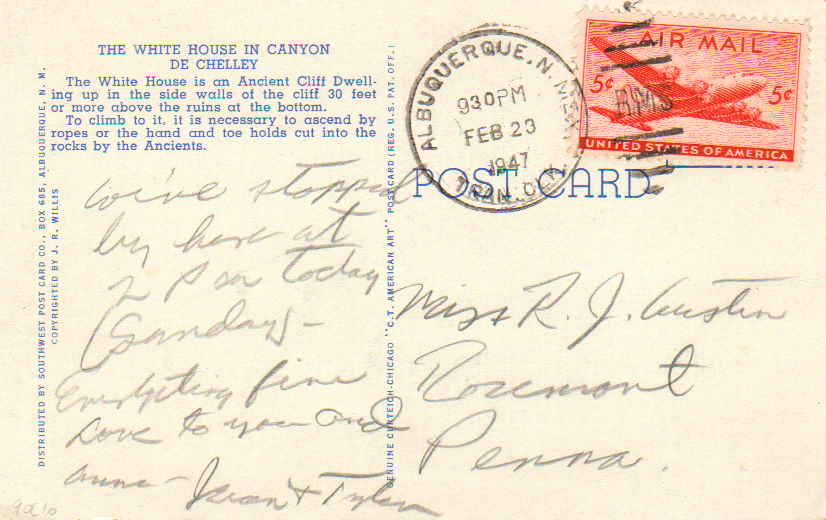 THE WHITE HOUSE IN CANYON
DE CHELLEY
The White House is an Ancient Cliff Dwell-
ing up in the side walls of the cliff 30 feet
or more above the ruins at the bottom.
To climb to it, it is necessary to ascend by
ropes or the hand and toe holds cut into the
rocks by the Ancients.
DISTRIBUTED BY SOUTHWEST POST CARD CO., BOX 685, ALBUQUERQUE, N. M.
COPYRIGHTED BY J. R. WILLIS
We've stopped
by here at
2 P m today
(Sunday)-
Everything fine
Love to you and
Anne- Jean + Tyler
GENUINE CURTEICH-CHICAGO "C.T. AMERICAN ART" POST CARD (REG. U.S. PAT. OFF.)
ALBUQUERQUE, N. MEX.
930 PM
FEB 23
1947
TRAN. CLK.
AIR MAIL
5¢
5¢
RMS
UNITED STATES OF AMERICA
POST CARD
Miss R. J. Austin
Rosemont
Penna.